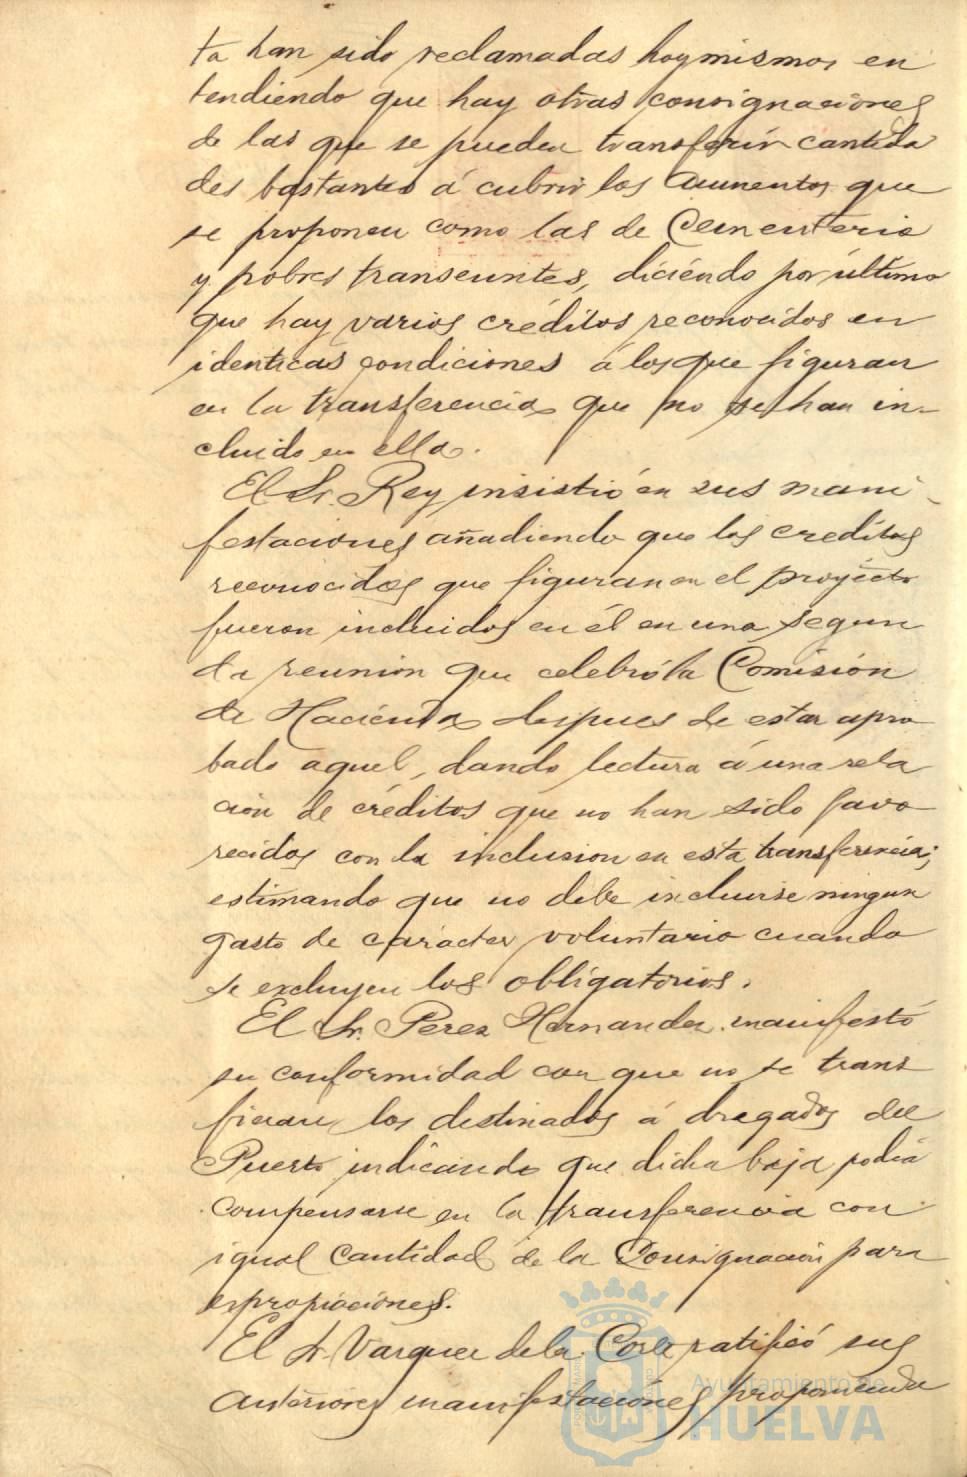 ta han sido reclamadas hoy mismo, en
tendiendo que hay otras consignaciones
de las que se pueden transferir cantida
des bastantes á cubrir los aumentos que
se proponen como las de Cementerio
y pobres transeuntes, diciendo por último
que hay varios créditos reconocidos en
identicas condiciones á los que figuran
en la transferencia que no se han in-
cluido en ella.
El Sr. Rey insistió en sus mani-
festaciones añadiendo que los creditos
reconocidos que figuran en el proyecto
fueron incluidos en él en una segun
da reunión que celebró la Comisión
de Hacienda despues de estar apro
bado aquel, dando lectura á una rela
ción de créditos que no han sido favo
recidos con la inclusion en esta transferencia;
estimando que no debe incluirse ningun
gasto de carácter voluntario cuando
se excluyen los obligatorios.
El Sr. Perez Hernandez manifestó
su conformidad con que no se trans
fieran los destinados á dragados del
Puerto indicando que dicha baja podia
compensarse en la transferencia con
igual cantidad de la Consignación para
expropiaciones.
El Sr. Vazquez de la Corte ratificó sus
anteriores manifestaciones proponiendo
Ayuntamiento de
HUELVA